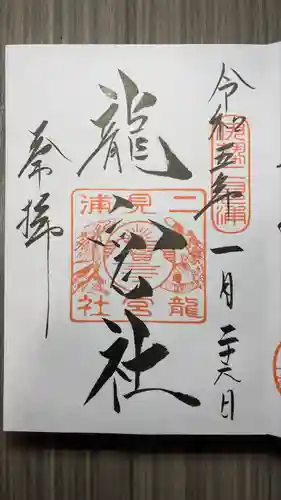 令和五年一月二十六日
伊勢二見浦
龍宮社
二見浦
龍宮社
奉拝